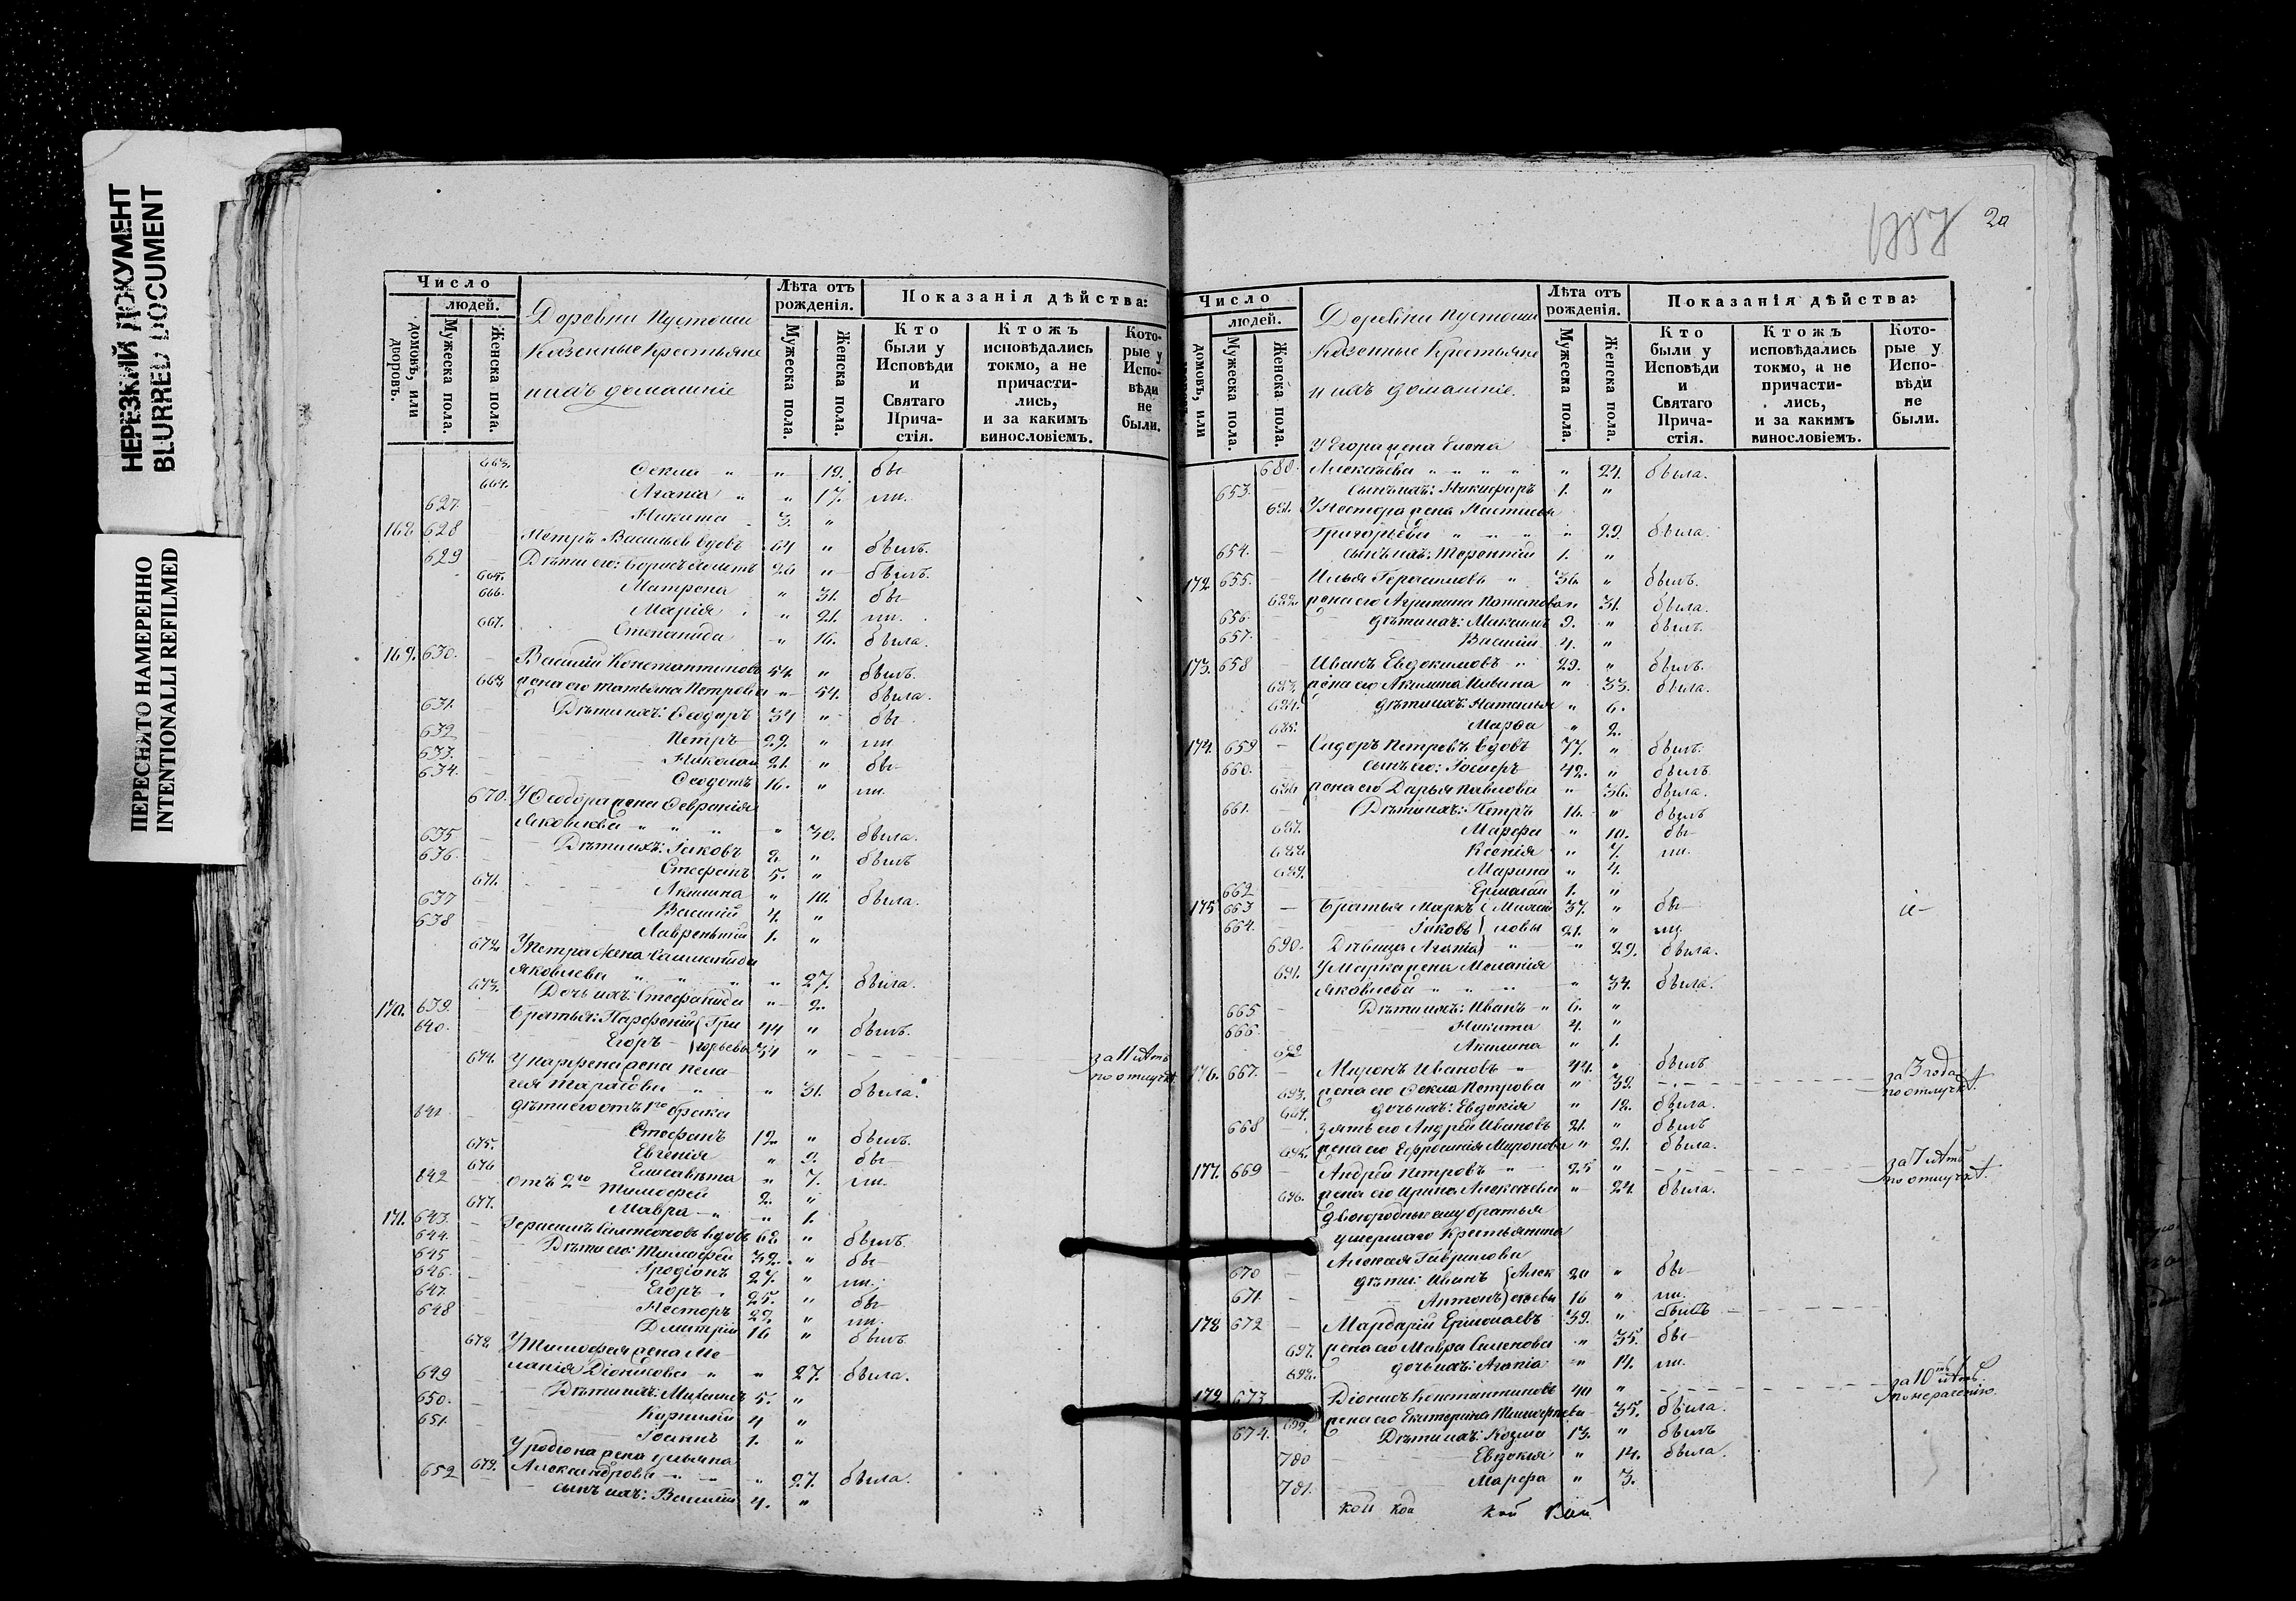 НЕРЕЗКИЙ ДОКУМЕНТ
BLURRED DOCUMENT
ПЕРЕСНЯТО НАМЕРЕННО
INTENTIONALLI REFILMED
Число
людей.
домовъ, или дворовъ.
Мужеска пола.
Женска пола.
Деревни Пустоши
Казенные Крестьяне
и ихъ домашніе
Лѣта отъ рожденія.
Мужеска пола.
Женска пола.
Показанія дѣйства:
Кто были у Исповѣди и Святаго Прича-стія.
Ктожъ исповѣдались токмо, а не причасти-лись, и за какимъ винословіемъ.
Кото-рые у Испо-вѣди не были.
663. Ѳекла " " 19. бы
664. Агапія " " 17. ли.
627. Никита 3. "
168 628 Петръ Васильевъ вдовъ 64 " былъ.
629 Дѣти его: 26 " былъ.
665. Матрена " 31. бы
666. Марія " 21. ли.
667. Степанида " 16. была.
169. 630. Василій Константиновъ 54. " былъ.
668 жена его Татьяна Петрова " 54. была.
631. Дѣти ихъ: Ѳеодоръ 34 " бы
632 Петръ 29. " ли
633. Николай 21. " бы
634. Ѳеодотъ 16. " ли.
670. У Ѳеодора жена Февронія
Яковлева " " " " 30. была.
635 Дѣти ихъ: Іаковъ 9. " былъ
636. Стефанъ 5. "
671. Акилина " 10. была.
637 Василій 4. "
638 Лаврентій 1. "
672 У Петра жена
Яковлева " " " " 27. была.
673. Дочь ихъ: Стефанида " 2.
170. 639. Братья: Парѳеній Гри 44 " былъ.
640. Егоръ горьевы 34 " за 11 лѣтъ
по отлучкѣ.
674. У Парѳена жена Пела-
гея Тарасова " " 31. была.
641. дѣти его отъ 1го брака
Стефанъ 12 " былъ.
675. Евгенія " 9. бы
676 Елисавета " 7. ли.
642 отъ 2го Тимофей 2. "
677. Мавра " " 1.
171. 643. Герасимъ вдовъ 62 " былъ.
644. Дѣти его: Тимофей 32. " бы
645 Іродіонъ 27. " ли.
646. Егоръ 25. " бы
647. Несторъ 22 " ли.
648 Димитрій 16 " былъ
678 У Тимофея жена Ме-
ланія " " 27. была.
649 Дѣти ихъ: Михаилъ 5. "
650. 4 "
651. Іоаннъ 1. "
У Родіона жена Ульяна
679. Александрова " " " 27. была.
652 сынъ ихъ: Василій 4. "
20
Число
людей.
домовъ, или
Мужеска пола.
Женска пола.
Деревни Пустоши
Казенные Крестьяне
и ихъ домашніе.
Лѣта отъ рожденія.
Мужеска пола.
Женска пола.
Показанія дѣйства:
Кто были у Исповѣди и Святаго Прича-стія.
Ктожъ исповѣдались токмо, а не причасти-лись, и за какимъ винословіемъ.
Кото-рые у Испо-вѣди не были.
У Егора жена Елена
680. Алексѣева " " " " " 24. была.
653. сынъ ихъ: Никифоръ 1. "
681. У Нестора жена Настасья
Григорьева " " " " 22. была.
654. сынъ ихъ: Терентій 1. "
172 655. Илья Герасимовъ " 36. " былъ.
682. жена его Агрипина " 31. была.
656. дѣти ихъ: Максимъ 9. " былъ.
657. Василій 4. "
173. 658 Иванъ Евдокимовъ " 29. " былъ.
683. жена его Акилина " 33. была.
684. дѣти ихъ: Наталья " 6.
685. Марѳа " 2.
174. 659 Сидоръ Петровъ вдовъ 77. " былъ.
660. сынъ его: 42. " былъ.
686 жена его Дарья Павлова " 36. была.
661. Дѣти ихъ: Петръ 16. " былъ
687. Марѳа " 10. бы
688 Ксенія " 7. ли.
689. Марина " 4.
662 Ермолай 1. "
175 663 Братья Маркъ 37. " бы
664. Іаковъ ловы 21. " ли.
690. Дѣвица Агапія " " 29. была.
691. У Марка жена Меланія
Яковлева " " " " 34. была.
665 Дѣти ихъ: Иванъ " 6. "
666. Никита 4. "
692 Акилина " 1.
176. 667. Миронъ Ивановъ " 44. " былъ
693. жена его Ѳекла Петрова " 39. за 3 года
по отлучкѣ.
694. дочь ихъ: Евдокія " 12. была.
668 зять его Андрей Ивановъ 21. " былъ
695. жена его Ефросинія Миронова " 21. была.
177. 669 Андрей Петровъ " 25 " за 7 лѣтъ
по отлучкѣ
696. жена его Ирина Алексѣева " 24. была.
двоюродные ему братья
умершаго Крестьянина
Алексѣя Гаврилова
670 дѣти: Иванъ Алек 20 " бы
671. Антонъ сѣевы 16 " ли.
178 672 Мардарій Ермолаевъ 39. " былъ
697. жена его Мавра Семенова " 35. бы
698. дочь ихъ: Агапія " 14. ли.
179 673. Діонисъ Константиновъ 40 " за 10ть лѣтъ
по нераденію.
699. жена его Екатерина Тимофеева 35. была.
674. Дѣти ихъ: Козма 13. " былъ
700 Евдокія " 14. была.
701. Марѳа " 3.